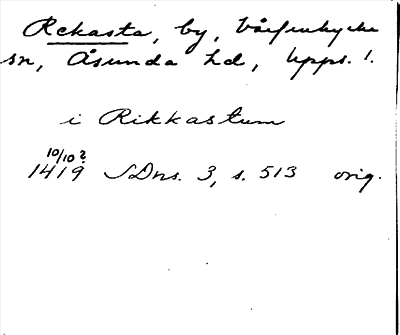 Rekasta, by, Vårfrukyrka
sn, Åsunda hd, Upps. l.
i Rikkastum
10/10?
1419 SDns. 3, s. 513 orig.